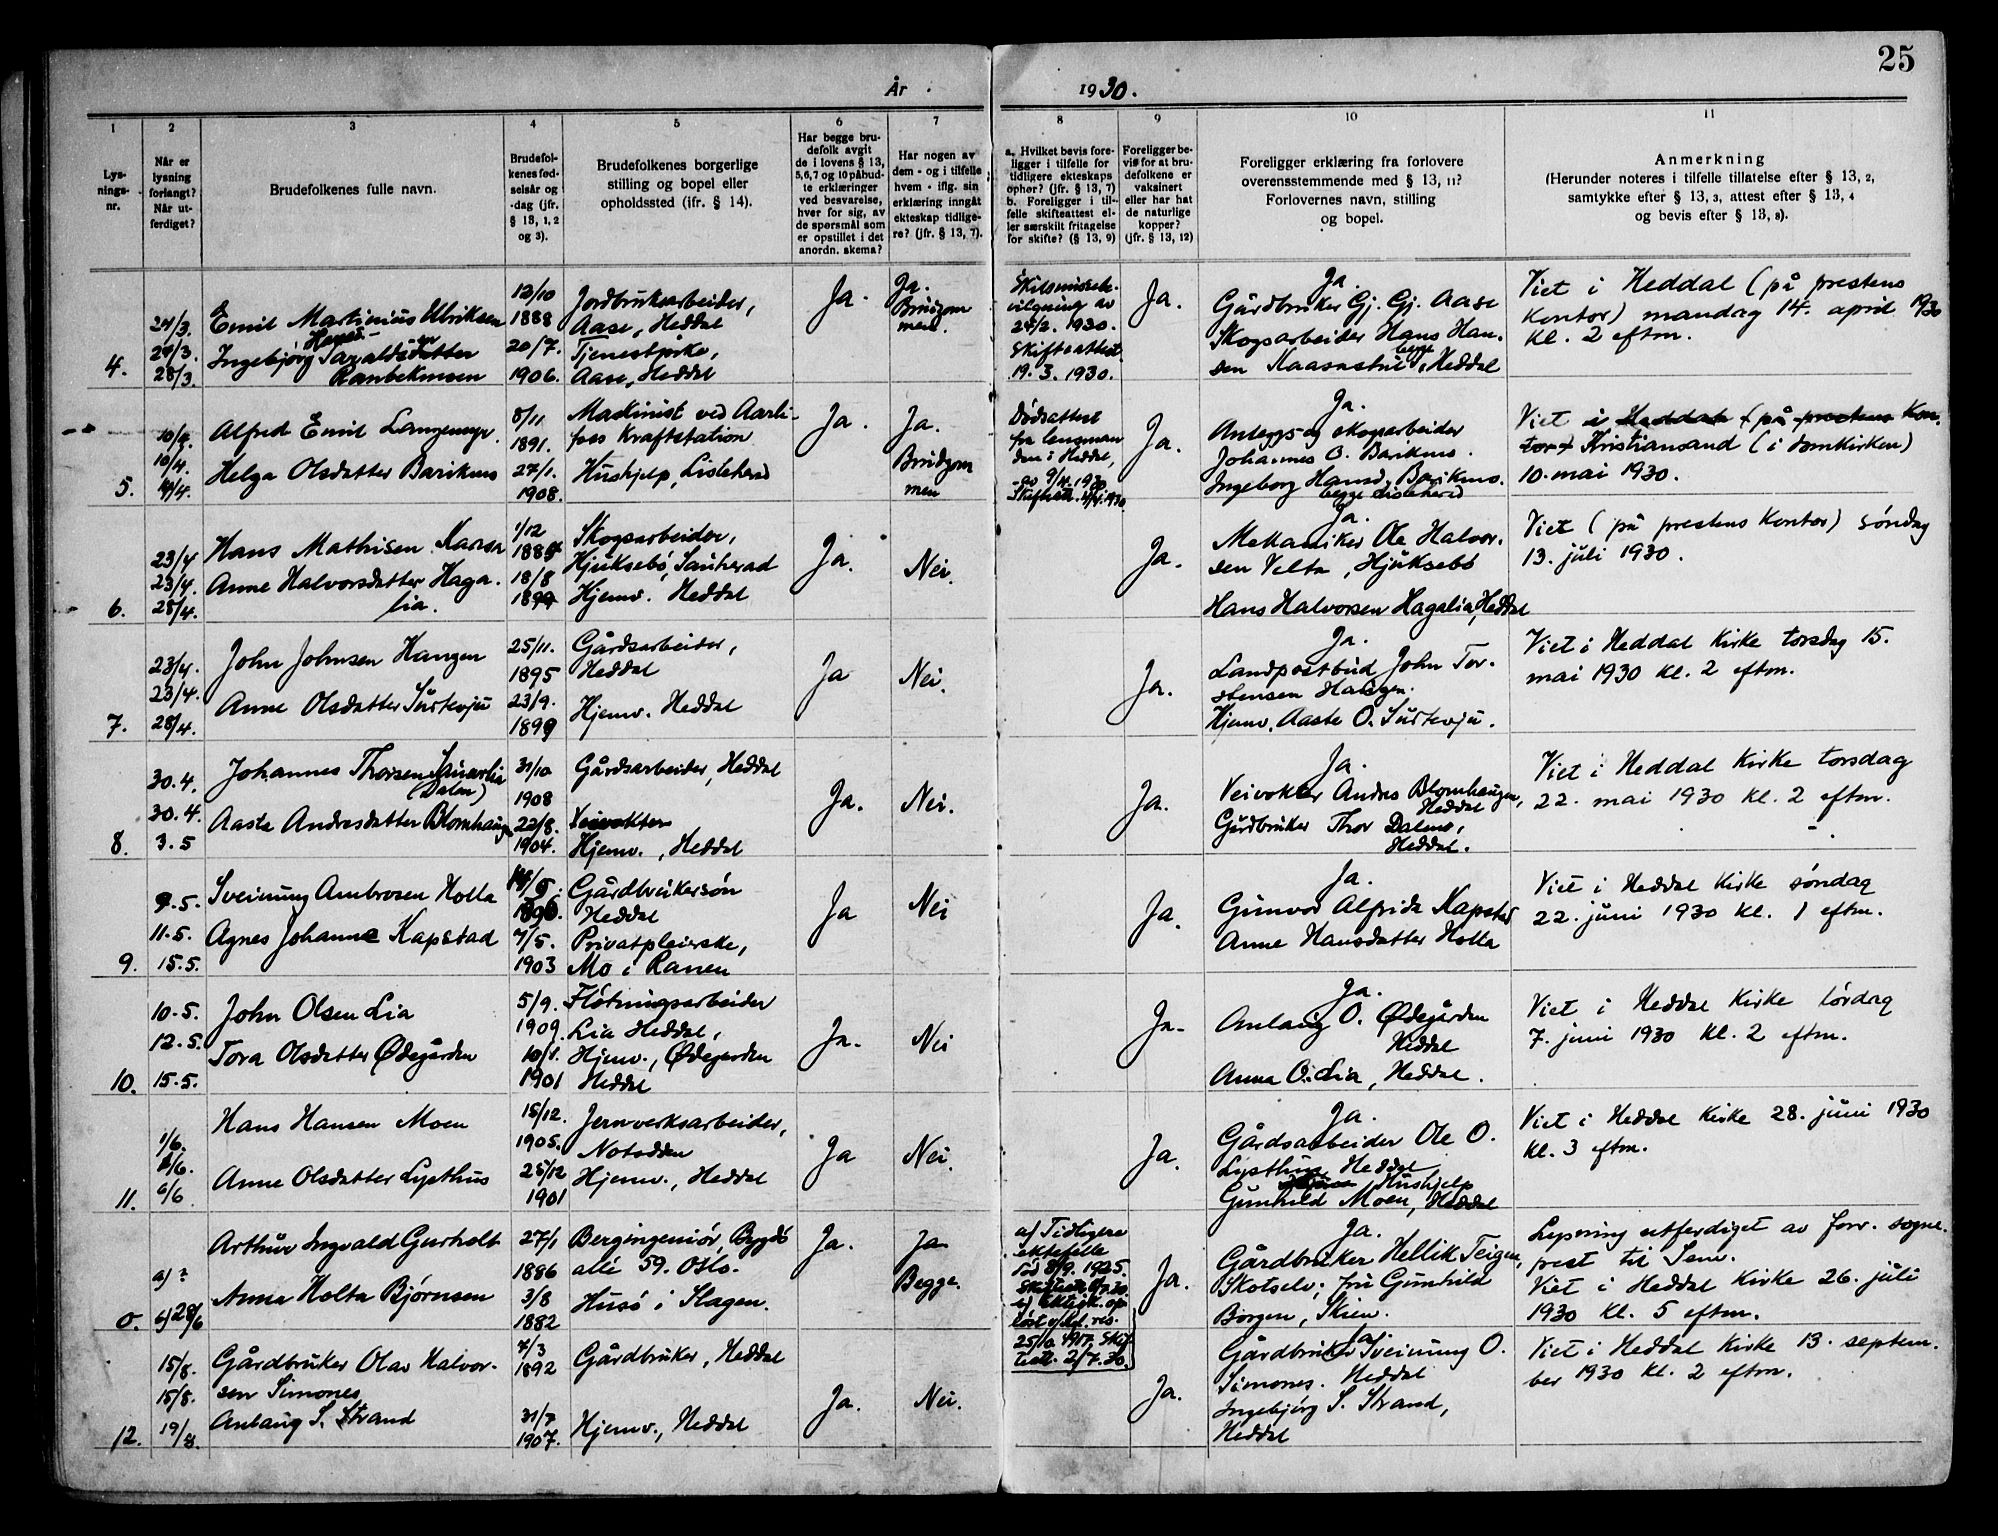 25
År 1930.
1 2 3 4 5 6 7 8 9 10 11
Lys-
nings-
nr.
Når er
lysning
forlangt?
Når ut-
ferdiget?
Brudefolkenes fulle navn.
Brudefol-
kenes fød-
selsår og
-dag (jfr.
§ 13, 1, 2
og 3).
Brudefolkenes borgerlige
stilling og bopel eller
opholdssted (ifr. § 14).
Har begge bru-
defolk avgit
de i lovens § 13,
5,6,7 og 10 påbud-
te erklæringer
ved besvarelse,
hver for sig, av
de spørsmål som
er opstillet i det
anordn. skema?
Har nogen av
dem - og i tilfelle
hvem - iflg. sin
erklæring inngått
ekteskap tidlige-
re? (jfr. § 13, 7).
a. Hvilket bevis fore-
ligger i tilfelle for
tidligere ekteskaps
ophør? (jfr. § 13, 7)
b. Foreligger i til-
felle skifteattest el-
ler særskilt fritagelse
for skifte? (§ 13, 9)
Foreligger be-
vis for at bru-
defolkene er
vaksinert
eller har hat
de naturlige
kopper?
(jfr. § 13, 12)
Foreligger erklæring fra forlovere
overensstemmende med § 13, 11?
Forlovernes navn, stilling
og bopel.
Anmerkning
(Herunder noteres i tilfelle tillatelse efter § 13, 2,
samtykke efter § 13, 3, attest efter § 13, 4
og bevis efter § 13, 8).
4.
24/3.
24/3.
28/3.
Emil Martinius Ulriksen
Hansd.
Ingebjørg Taraldsdatter
12/10
1888
20/7.
1906.
Jordbruksarbeider,
Aase, Heddal
Tjenestpike,
Aase, Heddal
Ja.
Ja.
Brudgom
men.
Skilsmisseb-
vilgning av
24/2. 1930.
Skifteattest
19. 3. 1930.
Ja.
Ja.
Gårdbruker Gj. Gj. Aase
Skogsarbeider Hans Han-
sen Kaasastul, begge Heddal
Viet i Heddal (på prestens
kontor) mandag 14. april 1930
kl. 2 eftm.
5.
10/4.
10/4.
14/4.
Alfred Emil Langemyr.
Helga Olsdatter Barikmo
8/11
1891.
27/1.
1908.
Maskinist ved Aarli-
foss Kraftstation
Hushjelp, Lisleherad
Ja.
Ja.
Brudgom
men
Dødsattest
fra lensman
den i Heddal,
av 9/4. 1930
Ja.
Ja.
Anleggs- og skogsarbeider
Johannes O. Barikmo.
Ingeborg Hansd. Barikmo.
begge Lisleherad
Viet i Heddal (på prestens kon-
tor) Kristiansand (i domkirken)
10. mai 1930.
6.
23/4
23/4.
28/4.
Hans Mathisen Kaasa
Anne Halvorsdatter Haga-
lia.
1/12
188
18/8
1899
Skogsarbeider,
Hjuksebø, Sauherad
Hjemv. Heddal
Ja.
Nei.
Ja.
Ja.
Mekaniker Ole Halvor-
sen Velta, Hjuksebø
Hans Halvorsen Hagalia, Heddal
Viet (på prestens kontor) søndag
13. juli 1930.
7.
23/4.
23/4.
28/4.
John Johnsen Haugen
Anne Olsdatter Surtevju
25/11.
1895
23/9.
1899
Gårdsarbeider,
Heddal
Hjemv. Heddal
Ja
Nei.
Ja.
Ja.
Landpostbud John Tor-
stensen Haugen.
Hjemv. Aaste O. Surtevju.
Viet i Heddal kirke torsdag 15.
mai 1930 kl. 2 eftm.
8.
30.4.
30.4.
3.5
Johannes Thorsen Sauarlia
(Dalen)
Aaste Andresdatter Blomhaugen
31/10
1908
22/8.
1904.
Gårdsarbeider, Heddal
Veivokter
Hjemv., Heddal
Ja.
Nei.
Ja.
Ja.
Veivokter Andres Blomhaugen,
Heddal
Gårdbruker Thor Dalen,
Heddal.
Viet i Heddal kirke torsdag
22. mai 1930 kl. 2 eftm.
9.
9.5.
11.5.
15.5.
Sveinung Ambrosen Holta
Agnes Johanne Kapstad
7/5.
1903
Gårdbrukersøn
Heddal
Privatpleierske,
Mo i Ranen
Ja
Nei
Ja.
Ja.
Gunvor Alfrida Kapstad
Anne Hansdatter Holta
Viet i Heddal kirke søndag
22. juni 1930 kl. 1 eftm.
10.
10.5.
12.5.
15.5.
John Olsen Lia
Tora Olsdatter Ødegården
5/9.
1909.
10/1.
1901
Fløtningsarbeider
Lia Heddal,
Hjemv., Ødegarden
Heddal
Ja.
Nei
Ja.
Ja.
Anlaug O. Ødegården
Heddal
Anna O. Lia, Heddal.
Viet i Heddal kirke lørdag
7. juni 1930 kl. 2 eftm.
11.
1/6.
6/6
Hans Hansen Moen
Anne Olsdatter Lysthus
15/12.
1905.
25/12
1901
Jernverksarbeider,
Notodden
Hjemv., Heddal
Ja
Nei.
Ja.
Ja.
Gårdsarbeider Ole O.
Lysthus Heddal
Hushjelp
Gunhild Moen, Heddal
Viet i Heddal kirke 28. juni 1930
kl. 3 eftm.
0.
a) ?
Arthur Ingvald Gurholt
Anna Holta Bjørnsen
27/1
1886
3/8
1882
Bergingeniør, Bygdø
allé 59. Oslo.
Husø i Slagen.
Ja.
Ja
Begge.
a) Tidligere
ektefelle
død 8/9. 1925.
Ja.
Ja.
Gårdbruker Hellik Teigen,
Skotselv; fru Gunhild
Borgen, Skien.
Lysning utferdiget av forv. sogne-
prest til Sem.
Viet i Heddal kirke 26. juli
1930 kl. 5 eftm.
12.
15/8.
15/8.
19/8.
Gårdbruker Olav Halvor-
sen Simones
Anlaug S. Strand
7/3
1892
31/7
1907.
Gårdbruker, Heddal
Hjemv., Heddal
Ja.
Nei.
Ja.
Ja.
Gårdbruker Sveinung O.
Simones. Heddal
Ingebjørg S. Strand,
Heddal
Viet i Heddal kirke 13. septem-
ber 1930 kl. 2 eftm.